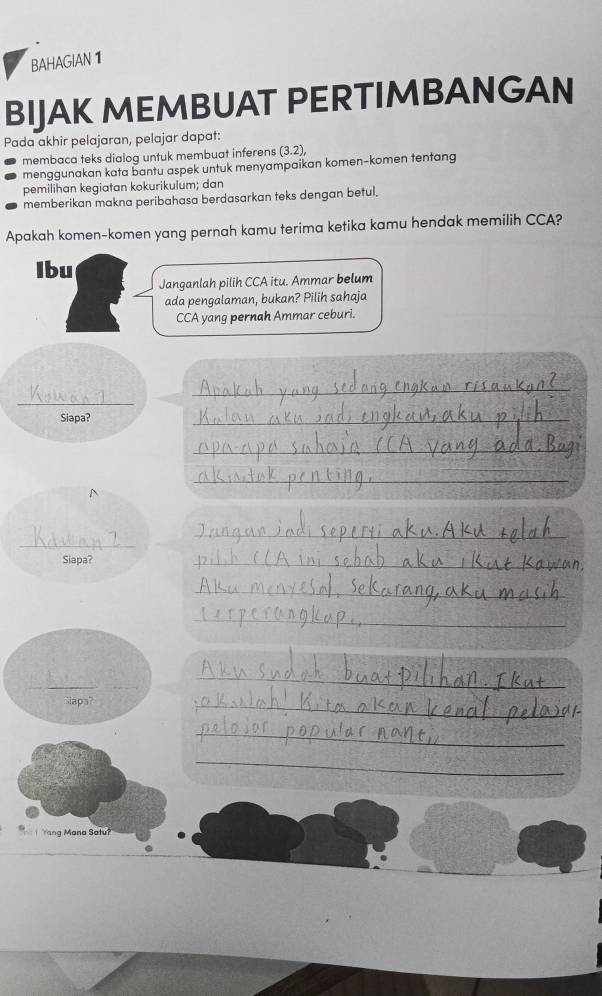 BAHAGIAN 1
BIJAK MEMBUAT PERTIMBANGAN
Pada akhir pelajaran, pelajar dapat:
membaca teks dialog untuk membuat inferens (3.2),
menggunakan kata bantu aspek untuk menyampaikan komen-komen tentang
pemilihan kegiatan kokurikulum; dan
memberikan makna peribahasa berdasarkan teks dengan betul.
Apakah komen-komen yang pernah kamu terima ketika kamu hendak memilih CCA?
Ibu
Janganlah pilih CCA itu. Ammar belum
ada pengalaman, bukan? Pilih sahaja
CCA yang pernah Ammar ceburi.
Kawan 1
Siapa?
Apakah yang sedang engkau risaukan?
Kalau aku jadi engkau, aku pilih
apa-apa sahaja CCA yang ada. Bagi
aku, tak penting.
Kawan 2
Siapa?
Jangan jadi seperti aku. Aku telah
pilih CCA ini sebab aku ikut kawan.
Aku menyesal. Sekarang, aku masih
terperangkap.
Siapa?
Aku sudah buat pilihan. Ikut
akulah! Kita akan kenal pelajar-
pelajar popular nanti.
Yang Mana Satu?